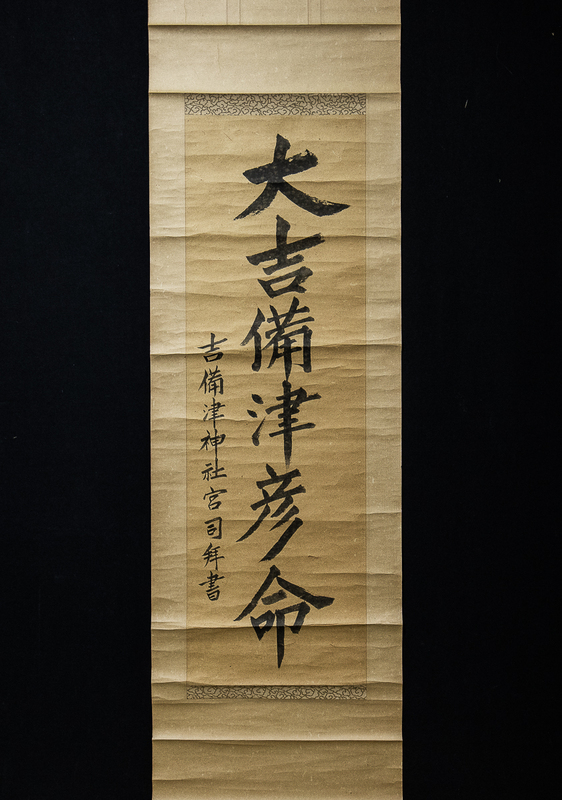 大吉備津彦命
吉備津神社宮司拜書